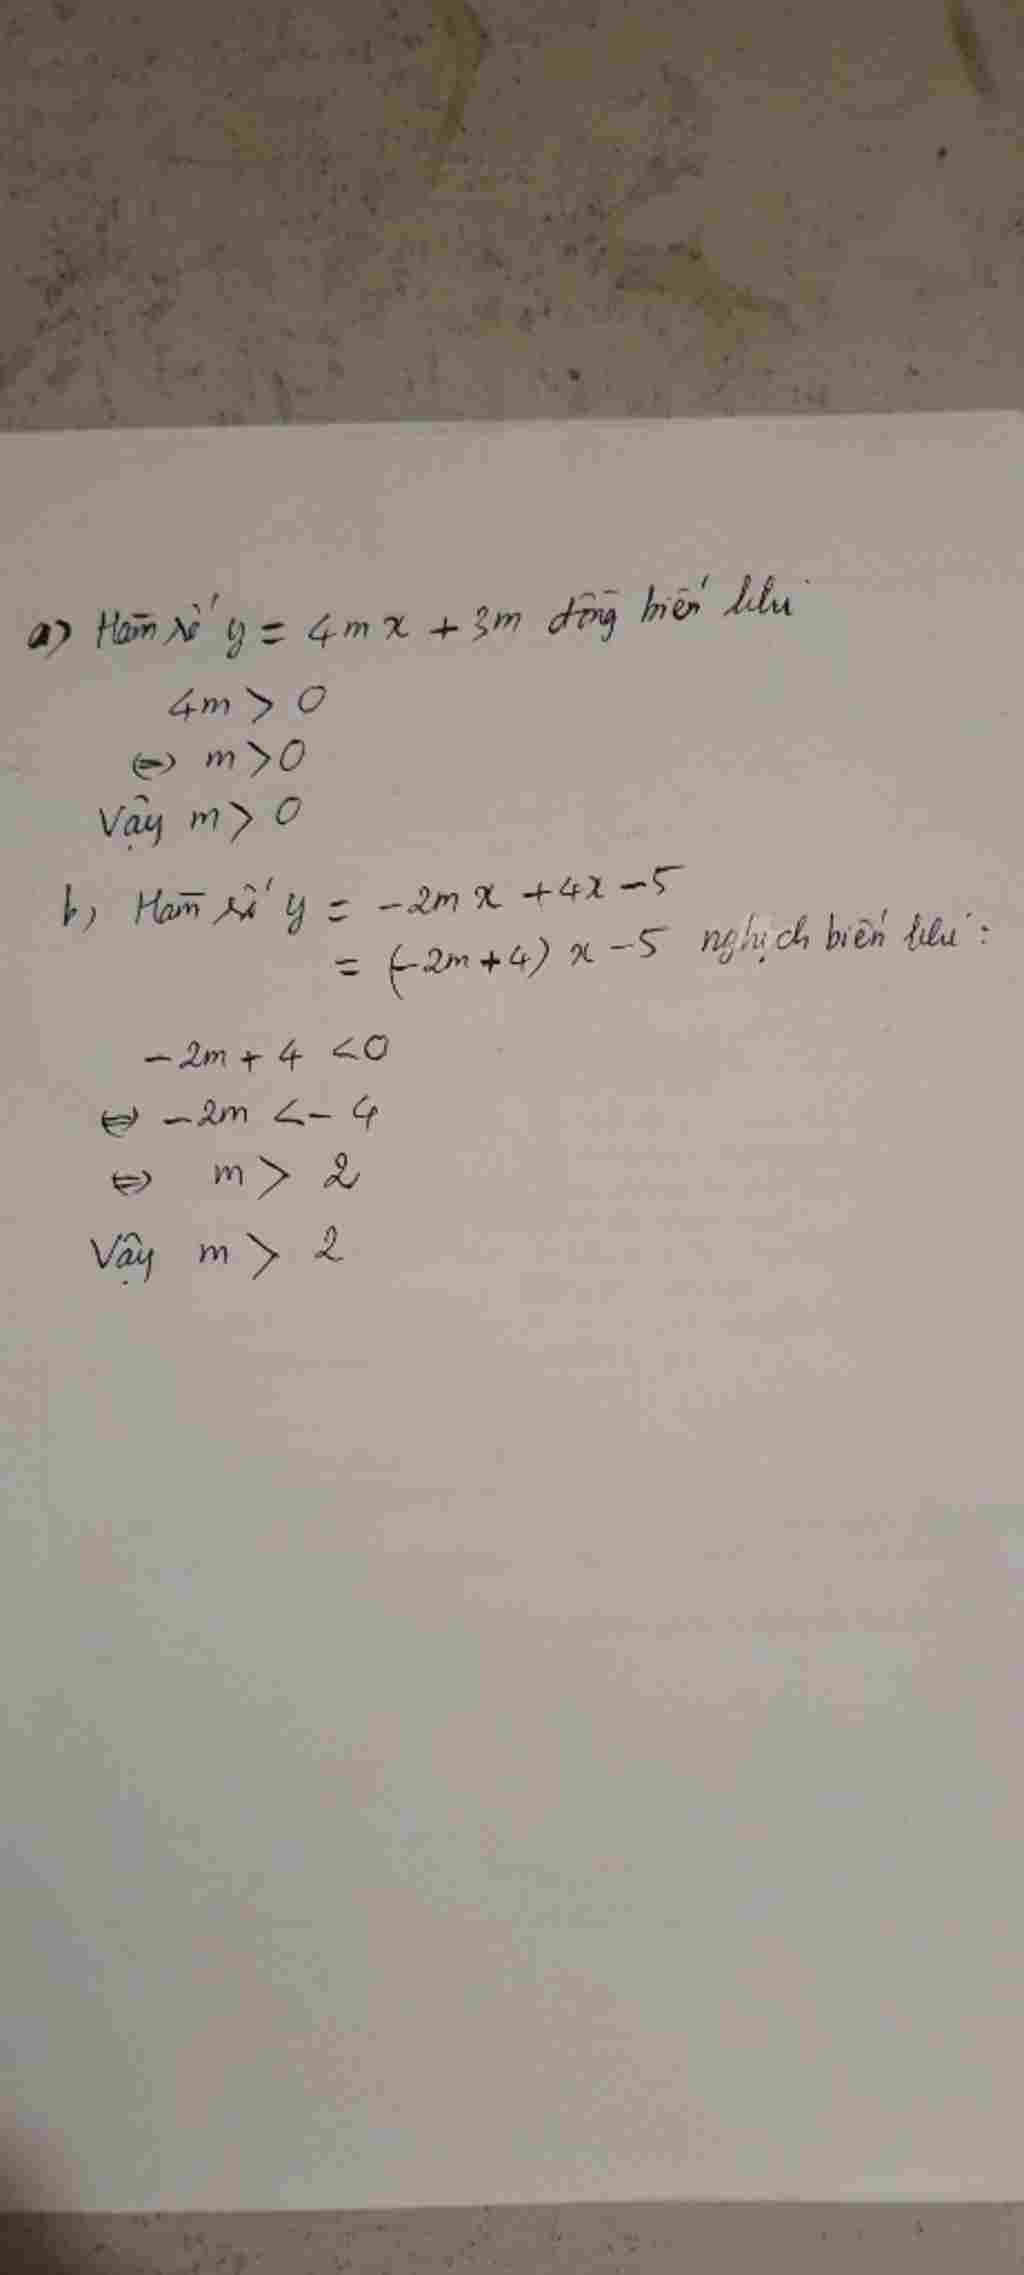 a) Hàm số y = 4mx + 3m đồng biến khi
4m > 0
⇔ m > 0
Vậy m > 0
b, Hàm số y = -2mx + 4x - 5
= (-2m + 4) x - 5 nghịch biến khi :
-2m + 4 < 0
⇔ -2m < -4
⇔ m > 2
Vậy m > 2